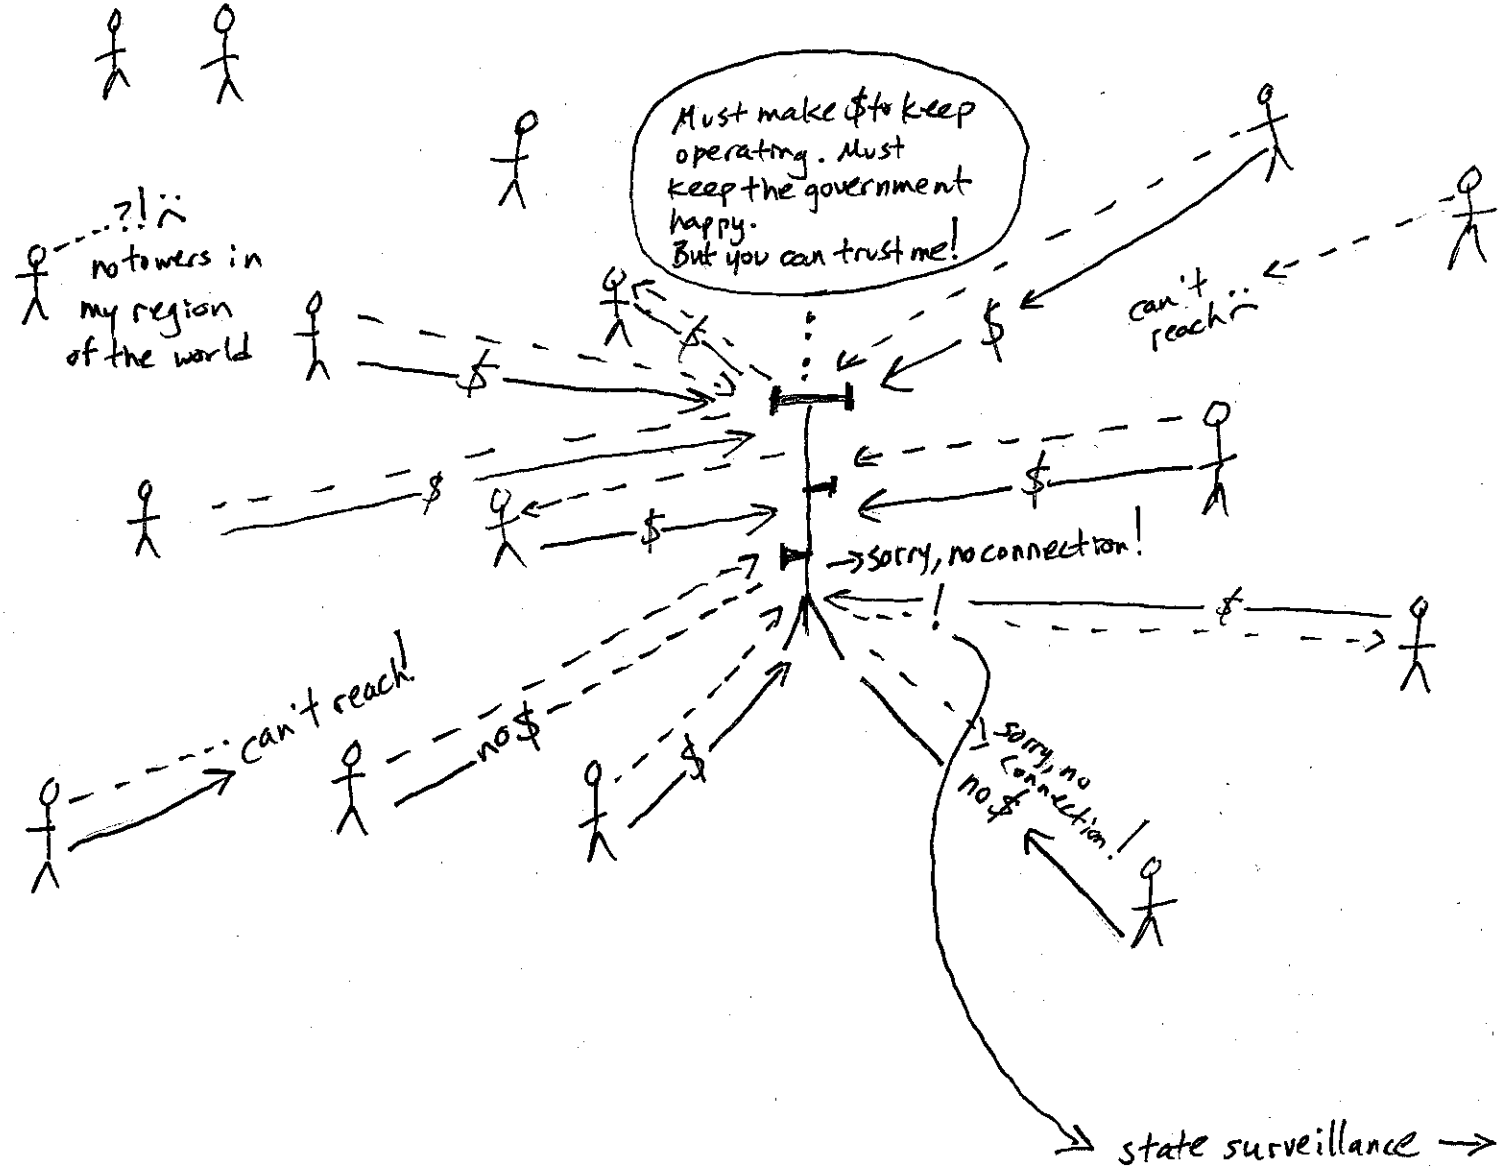 Must make $ to keep
operating. Must
keep the government
happy.
But you can trust me!
?!
no towers in
my region
of the world
can't
reach
$
$
$
$
$
$
$
sorry, no connection!
!
$
can't reach!
no $
$
sorry, no
connection!
no $
state surveillance